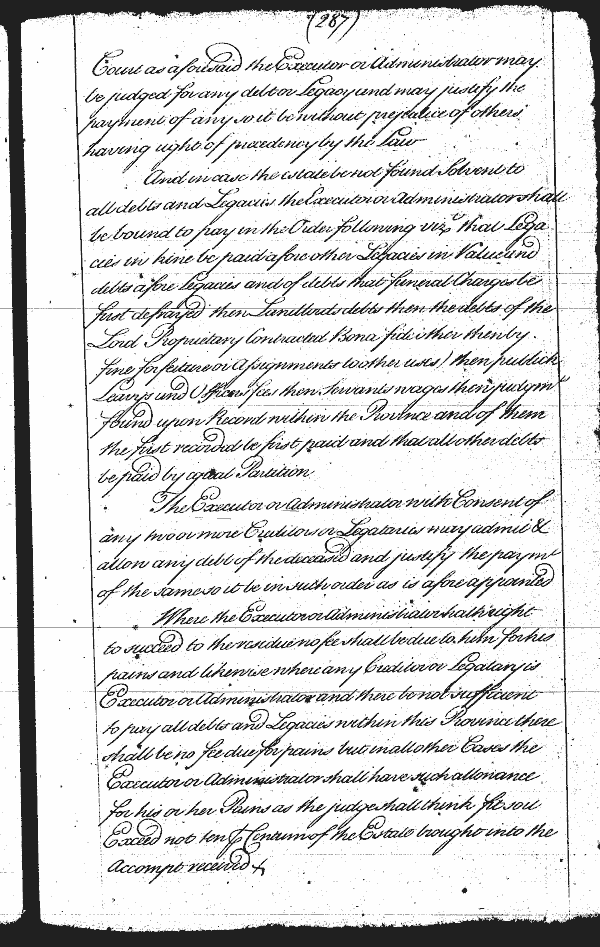 (287)
Court as aforesaid the Executor or Administrator may
be judged for any debt or Legacy and may justify the
payment of any so it be without prejudice of others
having right of precedency by the Law
And in case the estate be not found Solvent to
all debts and Legacies the Executor or Administrator shall
be bound to pay in the Order following vizt that Lega
cies in kine be paid afore other Legacies in Value and
debts afore Legacies and of debts that funeral Charges be
first defrayed then Landlords debts then the debts of the
Lord Proprietary Contracted Bona fide (other then by
fine forfeiture or Assignments to other uses) then publick
Leavys und Officers fees then Servants wages then judgmt
found upon Record within the Province and of them
the first recorded be first paid and that all other debts
be paid by aqual Partition
The Executor or Administrator with Consent of
any two or more Creditors or Legataries may admit &
allow any debt of the deceased and justify the paymt
of the same so it be in such order as is afore appointed
Where the Executor or Administrator hath right
to succeed to the residue no fee shall be due to him for his
pains and likewise where any Creditor or Legatary is
Executor or Administrator and there be not sufficient
to pay all debts and Legacies within this Province there
shall be no fee due for pains but in all other Cases the
Executor or Administrator shall have such allowance
for his or her Pains as the judge shall think fit so it
Exceed not ten P Centum of the Estate brought into the
Accompt received